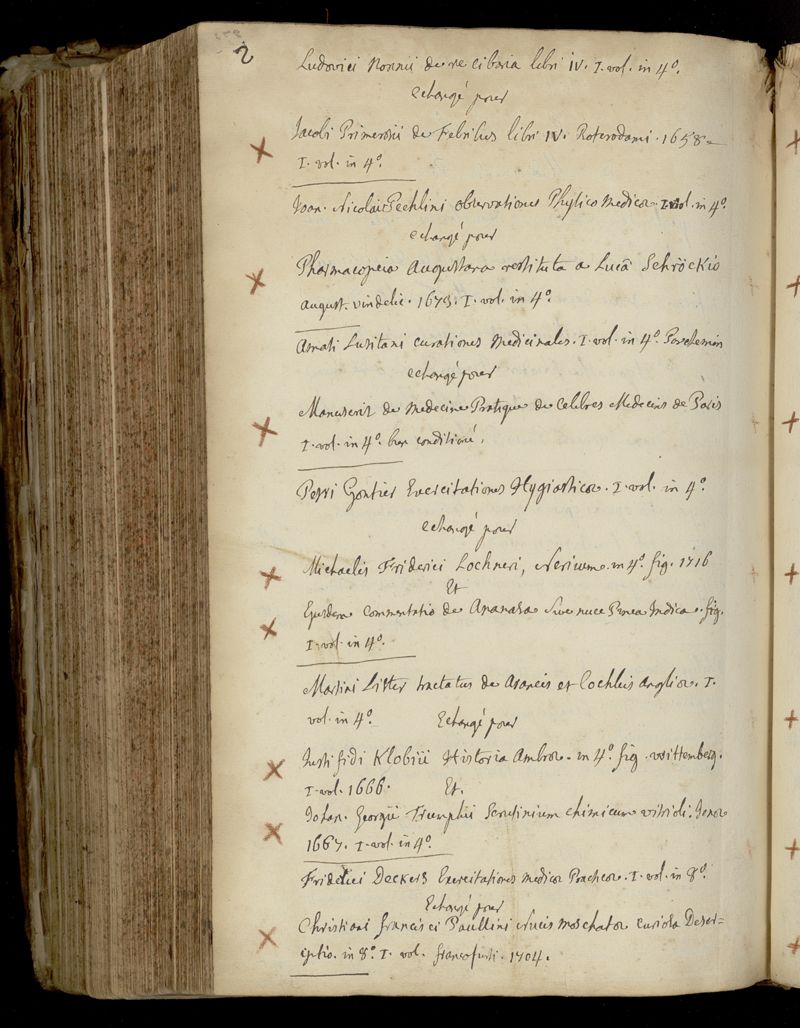 2
Ludovici Nonnii de re cibaria libri IV. I. vol. in 4º.
echangé pour
Jacobi Primerosii de Febribus libri IV. Roterodami. 1658.
I. vol. in 4º.
Joan. Nicolai Pechlini observationes Physico Medicæ. I. vol. in 4º.
echangé pour
Pharmacopeia Augustana restituta a Lucâ Schröckio
august. vindelic. 1673. I. vol. in 4º.
Amati Lusitani curationes Medicinales. I. vol. in 4º. Parchemin
echangé pour
Manuscrit de Medecine Pratique de Celebres Medecins de Paris
I. vol. in 4º. bien conditioné.
Petri Gontier Exercitationes Hygiasticæ. I. vol. in 4º.
echangé pour
Michaelis Friderici Lochneri, Nerium. in 4º. fig. 1716
Et
Ejusdem Commentatio de Ananasa sive nuce Pinea Indica. fig.
I. vol. in 4º.
Martini Lister tractatus de Araneis et Cochleis Angliæ. I.
vol. in 4º. Echangé pour
Justi fidi Klobii Historia Ambræ. in 4º. fig. Wittemberg.
I. vol. 1666. Et.
Johan. Georgii Trumphii Scrutinium chimicum vitrioli. Jenæ
1667. I. vol. in 4º.
Friderici Deckers Exercitationes medicæ Practicæ. I. vol. in 8º.
Echangé pour
Christiani francisci Paullini Nucis moschatæ curiosa Descri=
ptio. in 8º. I. vol. francofurti. 1704.